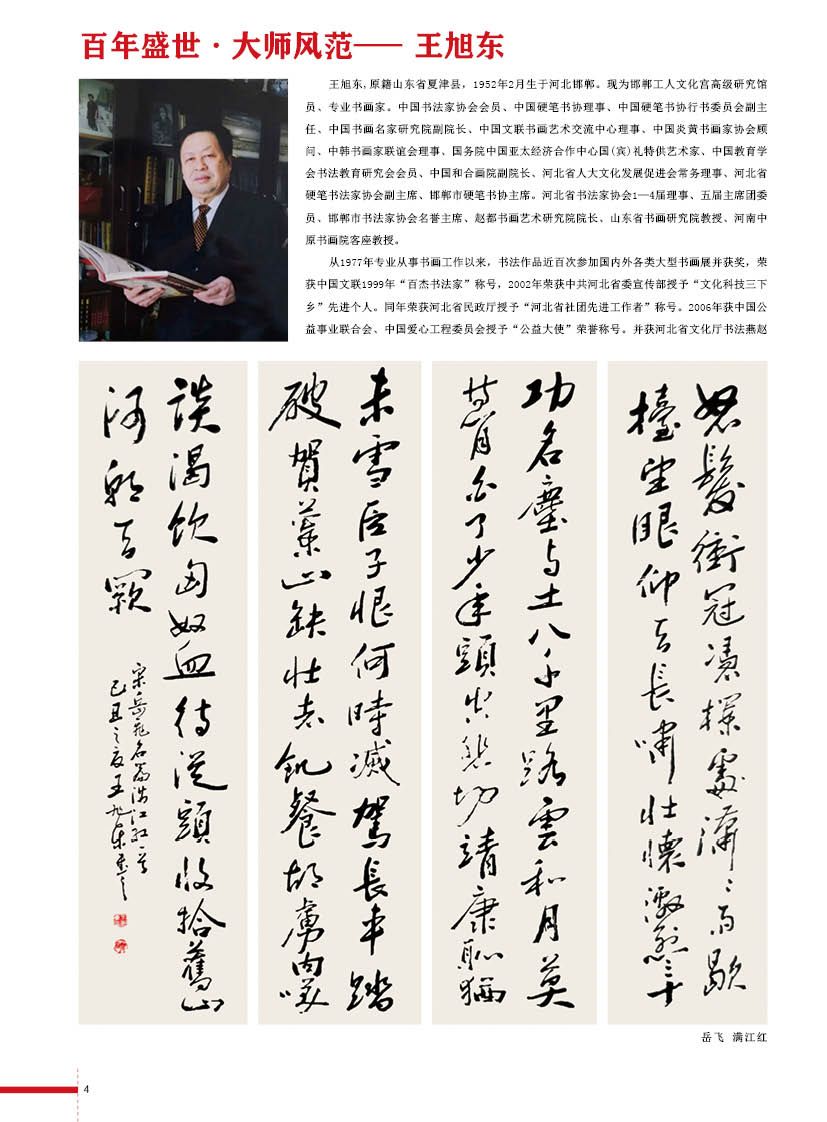 百年盛世·大师风范—— 王旭东
王旭东,原籍山东省夏津县，1952年2月生于河北邯郸。现为邯郸工人文化宫高级研究馆
员、专业书画家。中国书法家协会会员、中国硬笔书协理事、中国硬笔书协行书委员会副主
任、中国书画名家研究院副院长、中国文联书画艺术交流中心理事、中国炎黄书画家协会顾
问、中韩书画家联谊会理事、国务院中国亚太经济合作中心国(宾)礼特供艺术家、中国教育学
会书法教育研究会会员、中国和合画院副院长、河北省人大文化发展促进会常务理事、河北省
硬笔书法家协会副主席、邯郸市硬笔书协主席。河北省书法家协会1—4届理事、五届主席团委
员、邯郸市书法家协会名誉主席、赵都书画艺术研究院院长、山东省书画研究院教授、河南中
原书画院客座教授。
从1977年专业从事书画工作以来，书法作品近百次参加国内外各类大型书画展并获奖，荣
获中国文联1999年“百杰书法家”称号，2002年荣获中共河北省委宣传部授予“文化科技三下
乡”先进个人。同年荣获河北省民政厅授予“河北省社团先进工作者”称号。2006年获中国公
益事业联合会、中国爱心工程委员会授予“公益大使”荣誉称号。并获河北省文化厅书法燕赵
怒髮衝冠憑欄處瀟〻雨歇
擡望眼仰天長嘯壯懷激烈三十
功名塵与土八千里路雲和月莫
等閒白了少年頭空悲切靖康恥猶
未雪臣子恨何時滅駕長車踏
破賀蘭山缺壯志飢餐胡虜肉笑
談渴飲匈奴血待從頭收拾舊山
河朝天闕
宋岳飛名篇滿江紅一首
己丑之夏王旭東書
岳飞 满江红
4